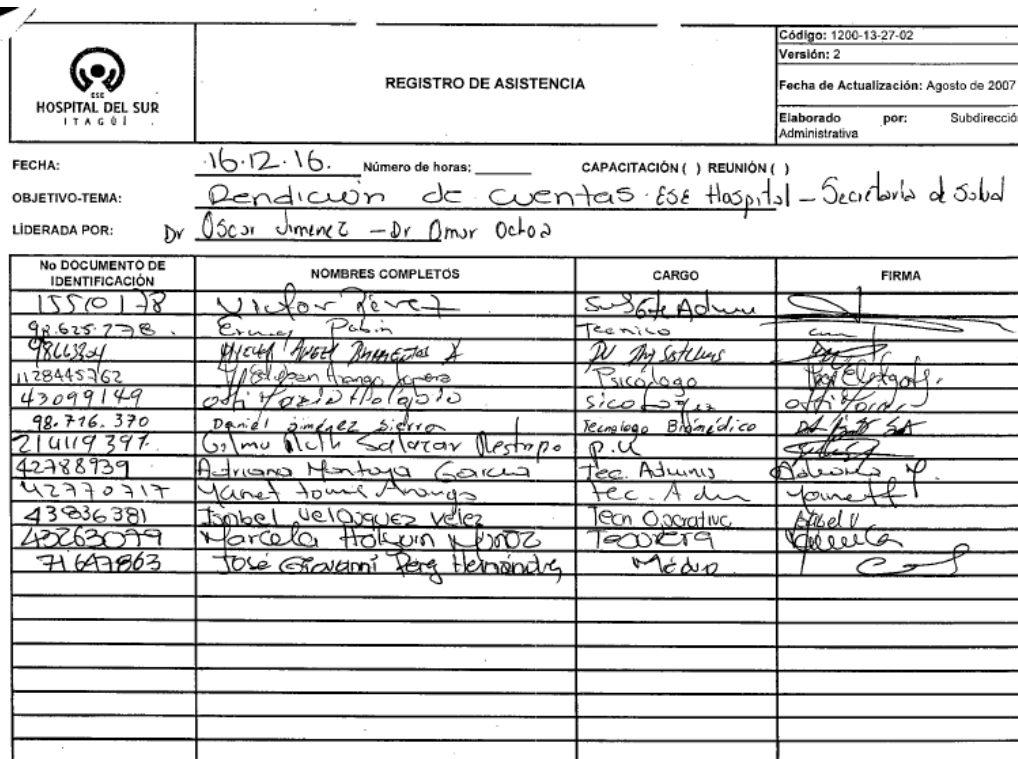 Código: 1200-13-27-02
Versión: 2
REGISTRO DE ASISTENCIA
Fecha de Actualización: Agosto de 2007
ESE
HOSPITAL DEL SUR
ITAGÜÍ
Elaborado por: Subdirecció
Administrativa
FECHA: 16.12.16. Número de horas: CAPACITACIÓN ( ) REUNIÓN ( )
OBJETIVO-TEMA: Rendición de cuentas ESE Hospital - Secretaría de Salud
LIDERADA POR: Dr Oscar Jimenez - Dr Omar Ochoa
No DOCUMENTO DE IDENTIFICACIÓN NOMBRES COMPLETOS CARGO FIRMA
15510178 Victor Pérez
98.625.778. Pabin Tecnico
1128445762 Psicologo
43099149
98.716.370 Daniel Jiménez Sierra Tecnologo Biomédico
Salazar Restrepo p.u
42788939 Adriana Montoya Garcia Tec. Adminis Adriana M.
42770717 Yanet Arango Tec. Adm
43836381 Isabel Velasquez Velez Tecn Operativa Isabel V
43263079 Marcela Holguin Muñoz Tesorera
71647863 José Giovanni Perez Hernández Médico